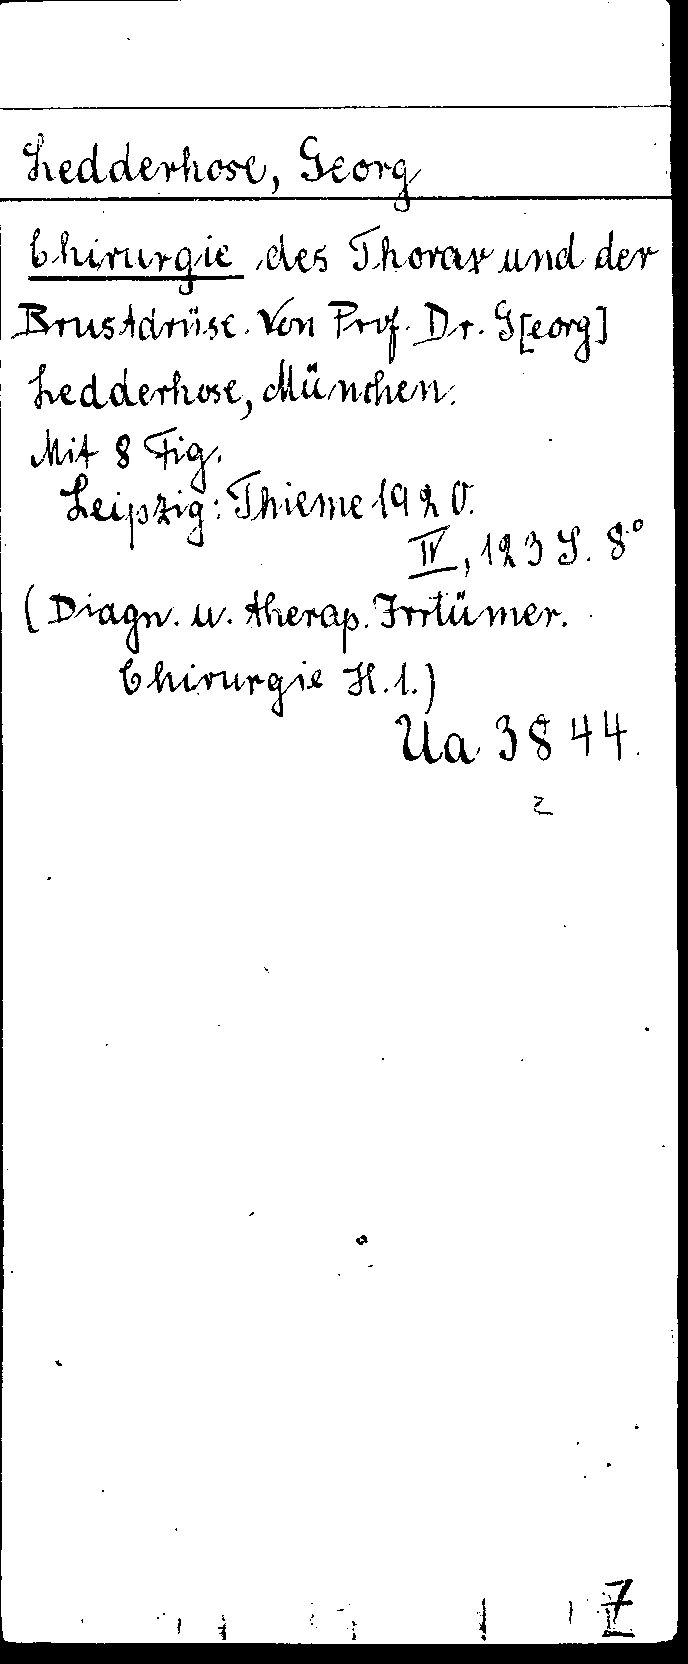 Ledderhose, Georg
Chirurgie des Thorax und der
Brustdrüse. Von Prof. Dr. G[eorg]
Ledderhose, München.
Mit 8 Fig.
Leipzig: Thieme 1920.
IV, 123 S. 8°
(Diagn. u. therap. Irrtümer.
Chirurgie H. 1.)
Ua 3844.
2
7